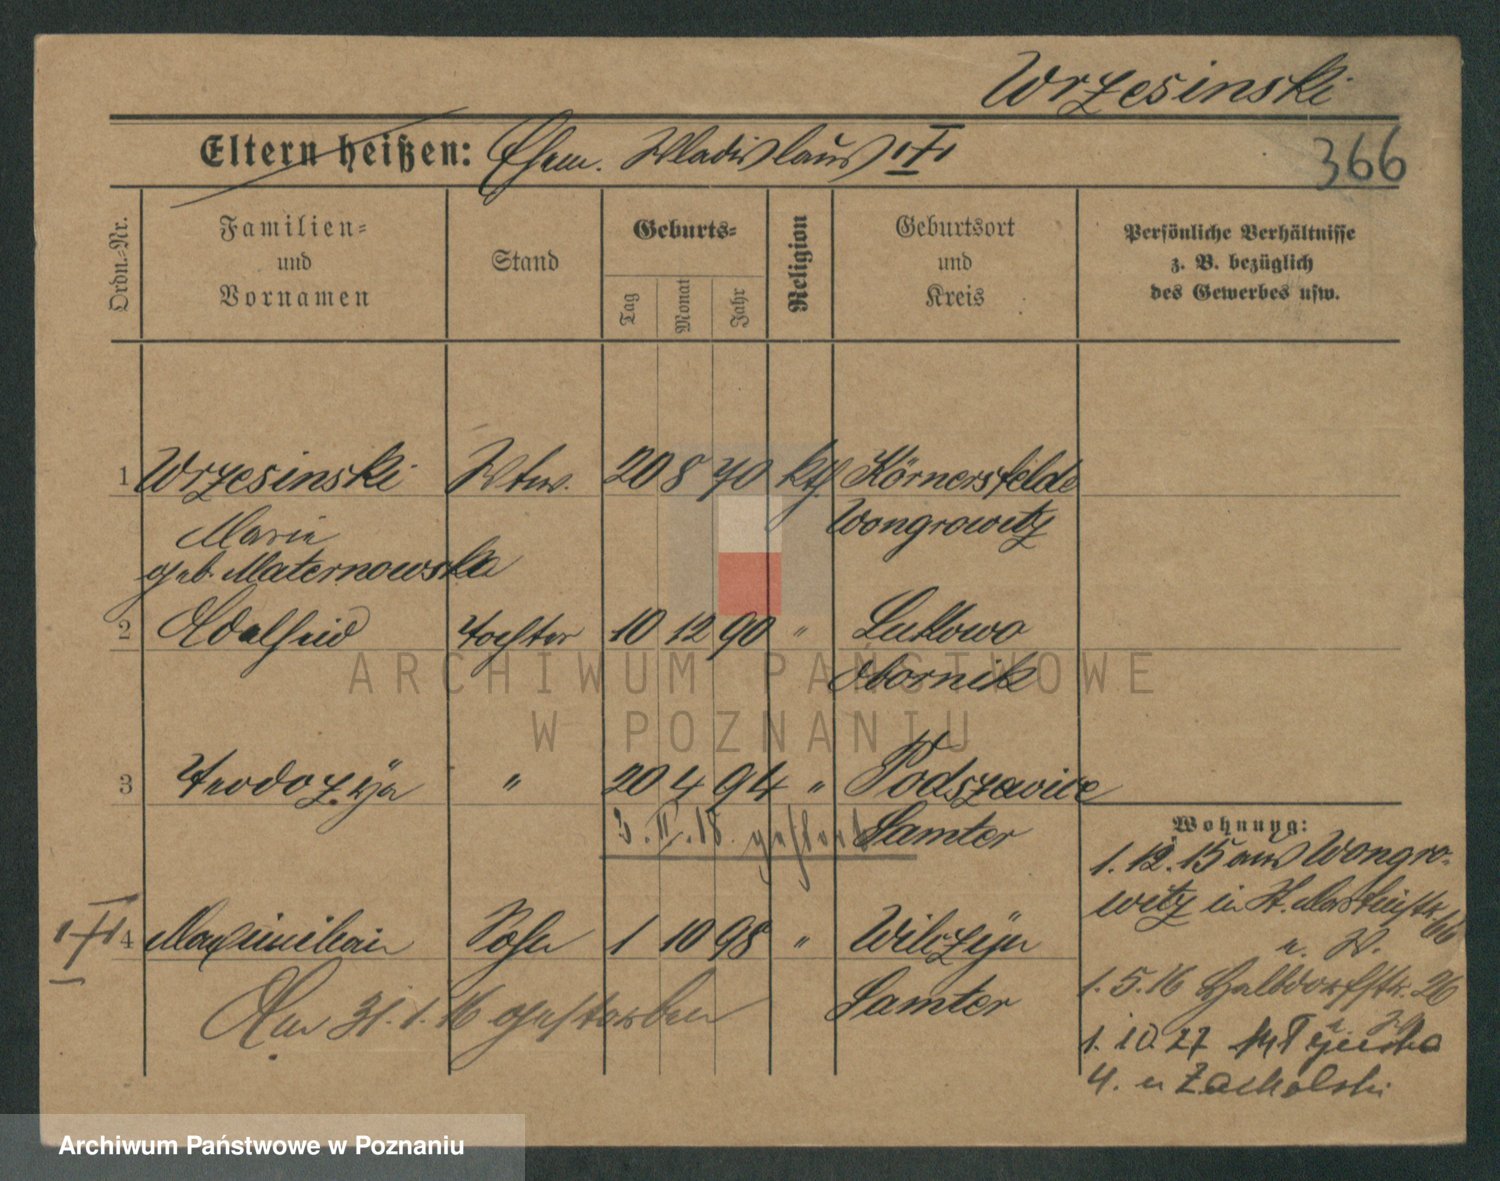 Wrzesinski
Eltern heißen: Ehem. Wladislaus
366
Ordn.-Nr.
Familien- und Vornamen
Stand
Geburts-
Tag
Monat
Jahr
Religion
Geburtsort und Kreis
Persönliche Verhältnisse
z. B. bezüglich
des Gewerbes usw.
1 Wrzesinski Wtw. 20 8 70 kth. Körnersfelde
Marie Wongrowitz
geb. Maternowska
2 Adelheid Tochter 10 12 90 " Lukowo
Obornik
ARCHIWUM PAŃSTWOWE
W POZNANIU
3 Teodozija " 20 4 94 " Podszewice
3.II.18. gestorb Samter
Wohnung:
1.12.15 aus Wongro-
witz in St. Martinstr. 66
u. W.
4 Maximilian Sohn 1 10 98 " Wilczyn
Am 31.1.16 gestorben Samter
1.5.16 Halbdorfstr. 26
1.10.27
4. u Zacholski
Archiwum Państwowe w Poznaniu